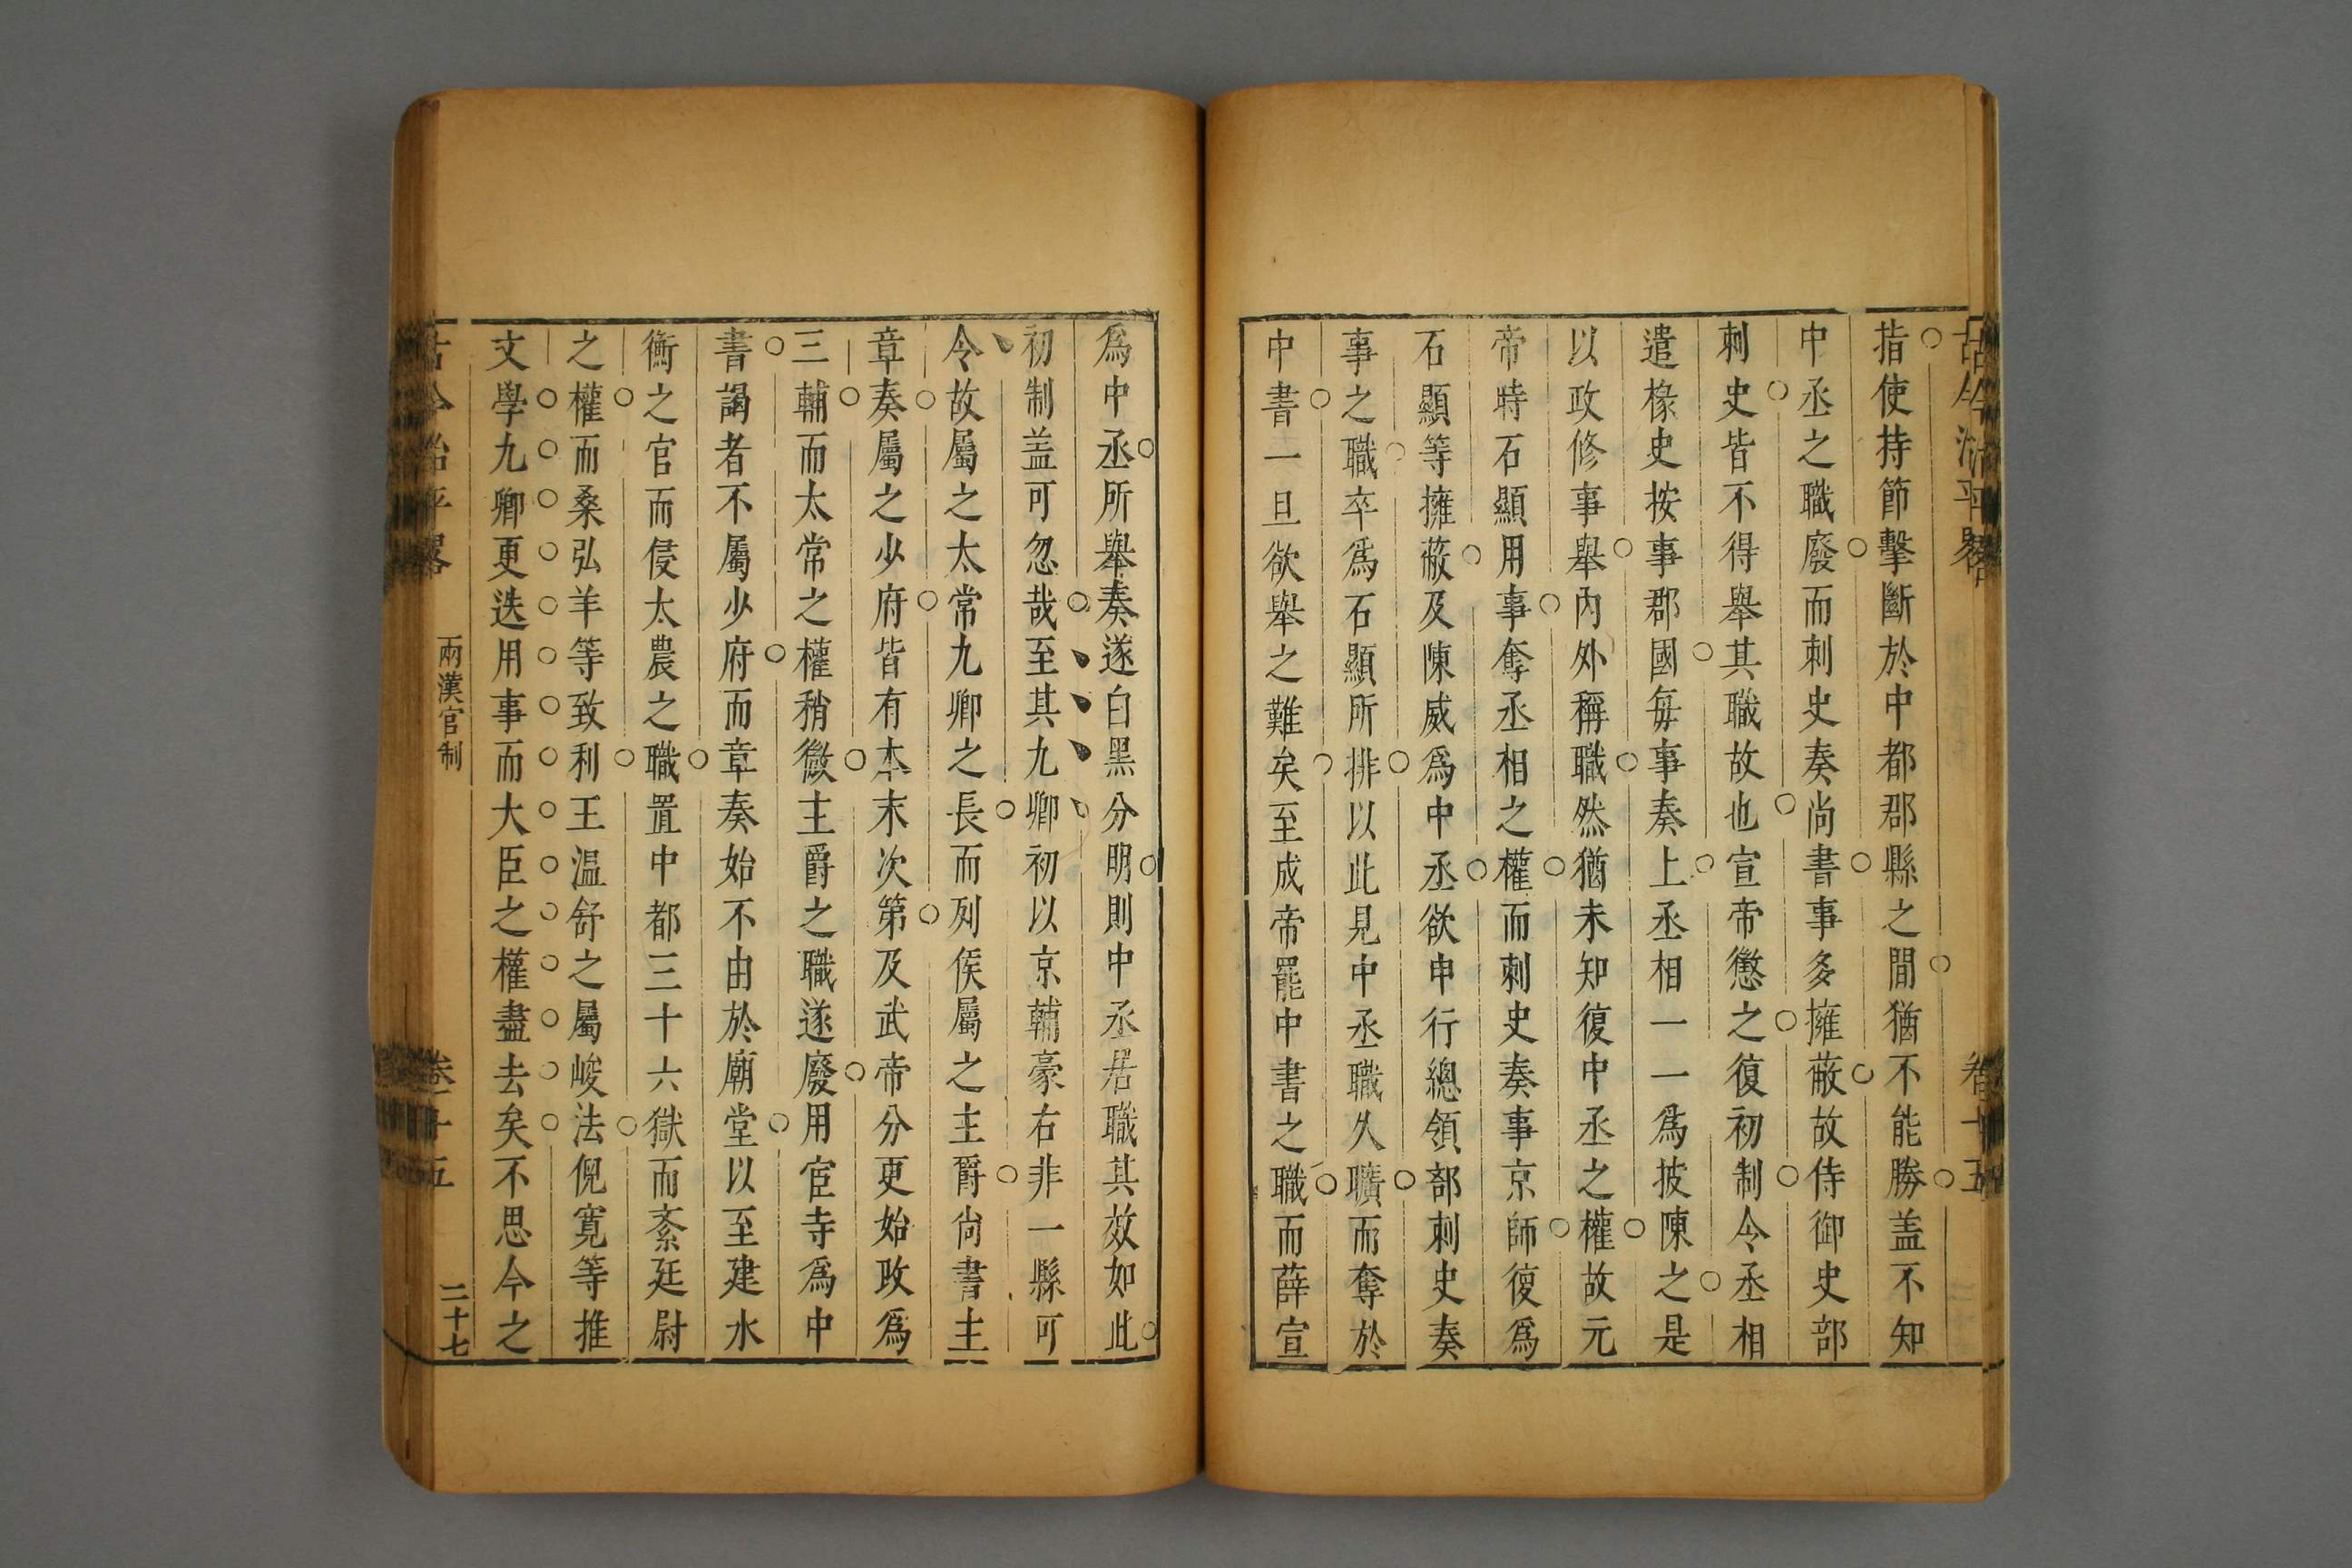 古今治平畧
卷十五
指使持節擊斷於中都郡縣之間猶不能勝盖不知
中丞之職廢而刺史奏尚書事多擁蔽故侍御史部
刺史皆不得舉其職故也宣帝懲之復初制令丞相
遣椽史按事郡國每事奏上丞相一一爲披陳之是
以政修事舉內外稱職然猶未知復中丞之權故元
帝時石顯用事奪丞相之權而刺史奏事京師復爲
石顯等擁蔽及陳咸爲中丞欲申行總領部刺史奏
事之職卒爲石顯所排以此見中丞職久曠而奪於
中書一旦欲舉之難矣至成帝罷中書之職而薛宣
爲中丞所舉奏遂白黑分明則中丞居職其效如此
初制盖可忽哉至其九卿初以京輔豪右非一縣可
令故屬之太常九卿之長而列侯屬之主爵尙書主
章奏屬之少府皆有本末次第及武帝分更始政爲
三輔而太常之權稍微主爵之職遂廢用宦寺爲中
書謁者不屬少府而章奏始不由於廟堂以至建水
衡之官而侵太農之職置中都三十六獄而紊廷尉
之權而桑弘羊等致利王温舒之屬峻法倪寬等推
文學九卿更迭用事而大臣之權盡去矣不思今之
古今治平畧
兩漢官制
卷十五
二十七